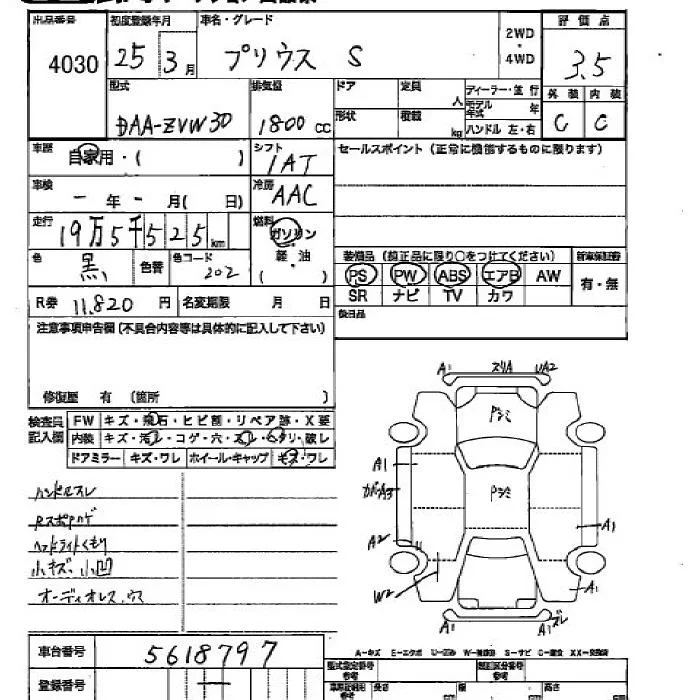 出品番号 初度登録年月 車名・グレード 2WD・4WD 評価点
4030 25 3月 プリウス S 3.5
型式 排気量 ドア 定員 人 ディーラー・並行 外装 内装
DAA-ZVW30 1800 CC 形状 積載 kg モデル年式 年 C C
ハンドル 左・右
車歴 自家用・( ) シフト 1AT セールスポイント (正常に機能するものに限ります)
車検 - 年 - 月( 日) 冷房 AAC
走行 19万5千525km 燃料 ガソリン
軽・油
( )
色 黒 色替 色コード 202
装備品 (純正品に限り○をつけてください) 新車保証書
PS PW ABS エアB AW 有・無
SR ナビ TV カワ
R券 11,820 円 名変期限 月 日
後日品
注意事項申告欄(不具合内容等は具体的に記入して下さい)
修復歴 有 (箇所 )
検査員記入欄 FW キズ・飛石・ヒビ割・リペア跡・X要
内装 キズ・汚レ・コゲ・穴・スレ・ヘタリ・破レ
ドアミラー キズ・ワレ ホイール・キャップ キズ・ワレ
ハンドルスレ
Rスポハゲ
ヘッドライトくもり
小キズ、小凹
オーディオレス、ウス
A1 スリA UA2
Pシミ
A1
Pシミ
カバーA3
A1
A2
W2
A1
A1 A1 ズレ
車台番号 5618797
A-キズ E-エクボ U-凹み W-補修跡 S-サビ C-腐食 XX-交換済
登録番号 型式指定番号 類別区分番号
長さ 幅 高さ